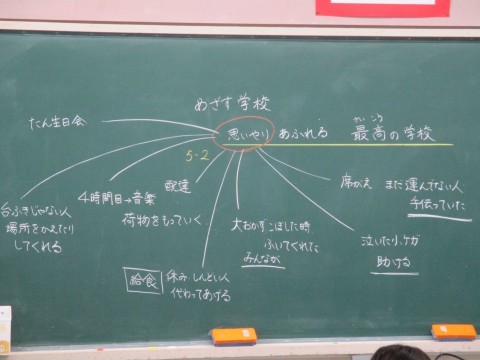 めざす学校
たん生日会
思いやり あふれる 最高の学校
さいこう
5-2
台ふきじゃない人
場所をかえたり
してくれる
4時間目→音楽
荷物をもっていく
配達
給食
休み・しんどい人
代わってあげる
大おかずこぼした時
ふいてくれた
みんなが
席がえ まだ運んでない人
手伝っていた
泣いた小、ケガ
助ける